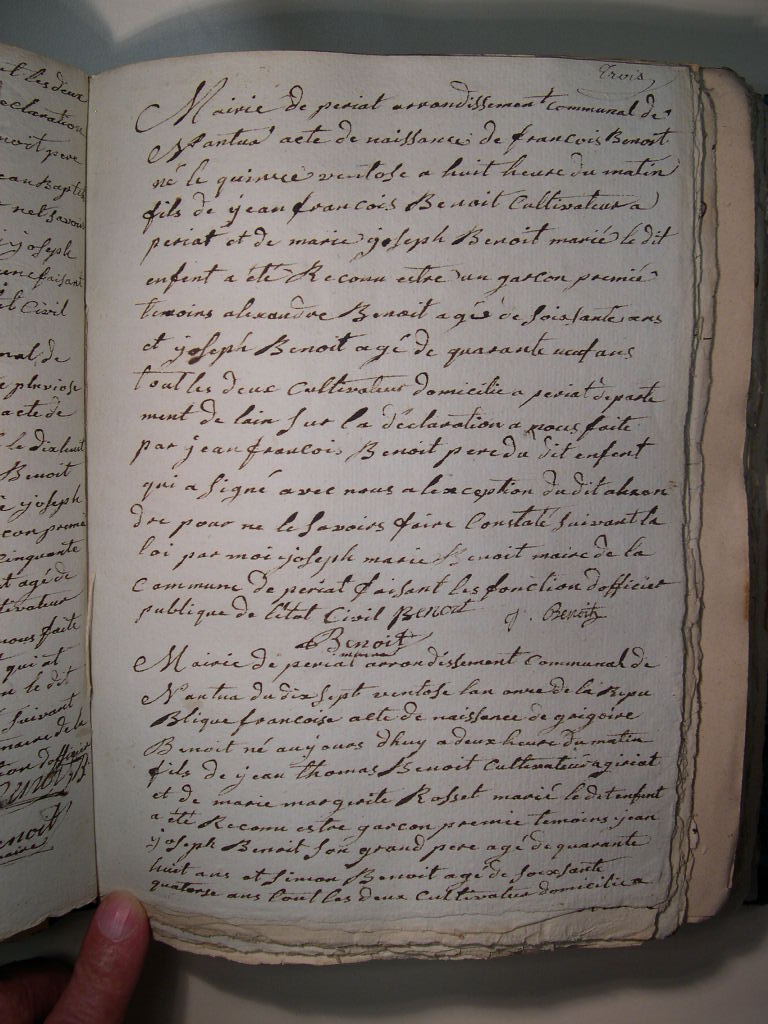 t les deux
eclaration
noit pere
ean Bapti
net Savoir
joseph
une faisant
t Civil
nal de
e pluviose
acte de
le dixhuit
Benoit
e joseph
con premie
Cinquante
t agé de
tivateur
nous faite
qui at
n le dit
Suivant
maire de la
ion dofficier
enoit
maire
Trois
Mairie de periat arrondissement Communal de
Nantua acte de naissance de francois Benoit
né le quinze ventose a huit heure du matin
fils de jean francois Benoit Cultivateur a
periat et de marie joseph Benoit marié le dit
enfent a été Reconu estre un garcon premié
temoins alexandre Benoit agé de soixsante ans
et joseph Benoit agé de quarante neuf ans
tout les deux Cultivateur domicilie a periat departe
ment de lain sur la déclaration a nous faite
par jean francois Benoit pere du dit enfent
qui a signé avec nous a lexception du dit alexan
dre pour ne le Savoirs faire Constaté Suivant la
loi par moi joseph marie Benoit maire de la
Commune de periat faisant les fonction dofficier
publique de létat Civil Benoit j. Benoit
Benoit
maire
Mairie de periat arrondissement Communal de
Nantua du dix sept ventose lan onze de la Repu
Blique francoise acte de naissance de grigoire
Benoit né aujours dhuy a deux heure du matin
fils de jean thomas Benoit Cultivateur a giriat
et de marie margerite Rosset marié le dit enfent
a été Reconu estre garcon premie temoins jean
joseph Benoit son grand pere agé de quarante
huit ans et Simon Benoit agé de soixsante
quatorse ans tout les deux Cultivateur domicilié a